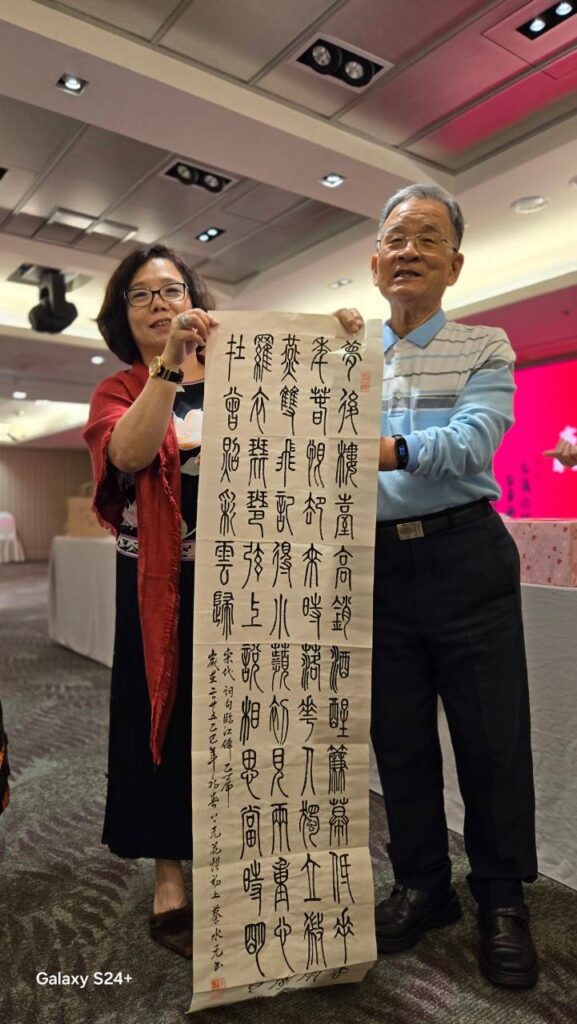 夢後樓臺高鎖酒醒簾幕低垂
年春恨却來時落花人獨立微
燕雙飛記得小蘋初見兩重心
羅衣琵琶弦上說相思當時明
在曾照彩雲歸
宋代 詞句臨江
乙巳年 蔡水元書
Galaxy S24+